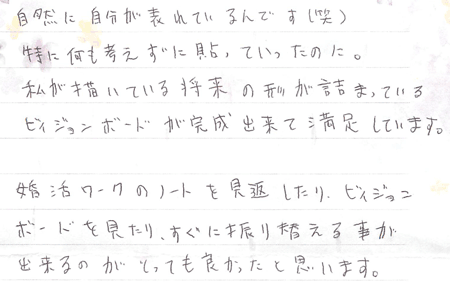 自然に自分が表れているんです(笑)
特に何も考えずに貼っていったのに。
私が描いている将来の形が詰まっている
ビィジョンボードが完成出来て満足しています。
婚活ワークのノートを見返したり、ビィジョン
ボードを見たり、すぐに振り替える事が
出来るのがとっても良かったと思います。